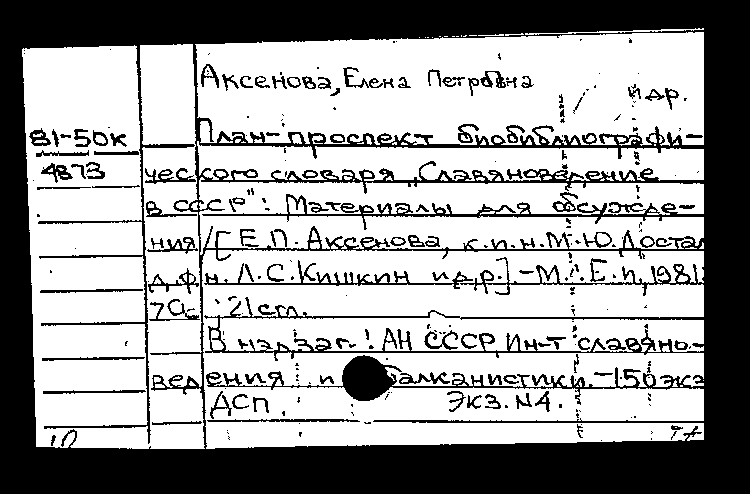 Аксенова, Елена Петровна
и др.
81-50к
4873
План-проспект биобиблиографи-
ческого словаря „Славяноведение
в СССР": Материалы для обсужде-
ния/[Е.П. Аксенова, к.и.н. М.Ю. Достал
д.ф.н. Л.С. Кишкин и др.].-М.: Б.и, 1981.
70с ; 21 cm.
В надзаг.: АН СССР, Ин-т славяно-
ведения и балканистики. - 150 экз
ДСП. Экз. N4.
10